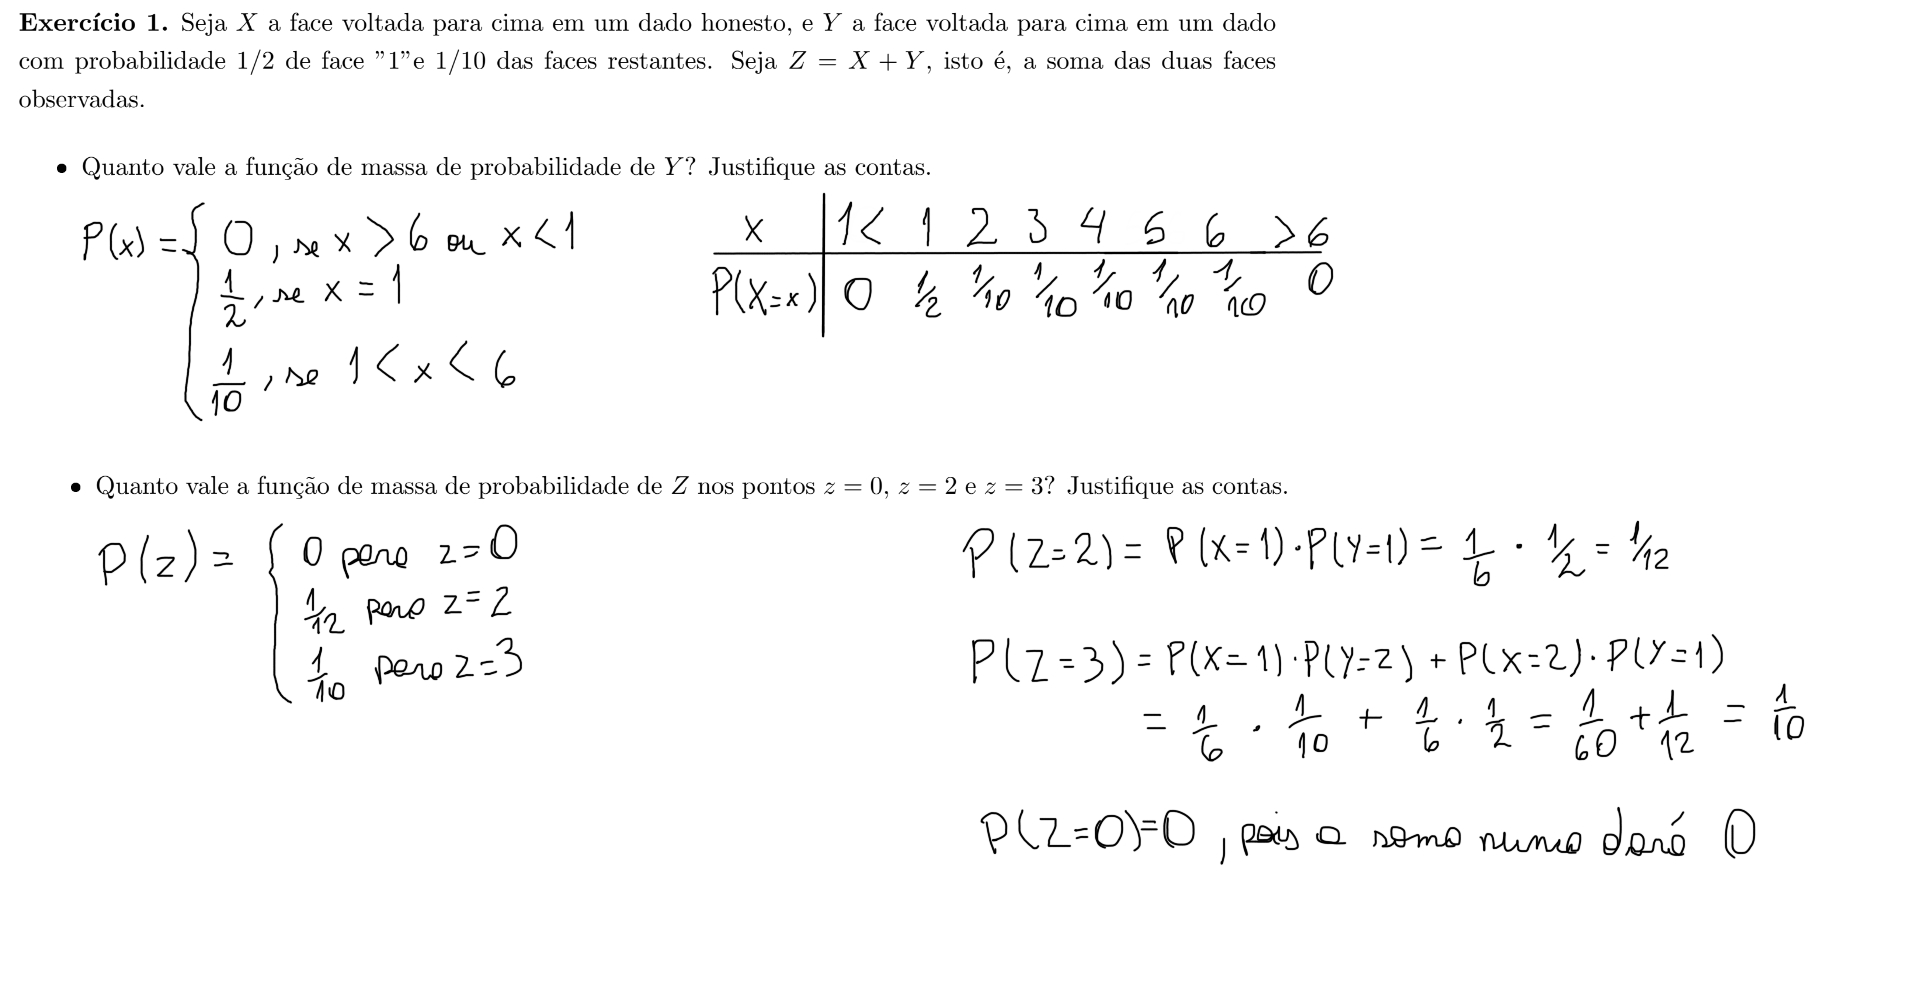 Exercício 1. Seja X a face voltada para cima em um dado honesto, e Y a face voltada para cima em um dado
com probabilidade 1/2 de face ”1”e 1/10 das faces restantes. Seja Z = X + Y, isto é, a soma das duas faces
observadas.
• Quanto vale a função de massa de probabilidade de Y? Justifique as contas.
P(x) = { 0, se x > 6 ou x < 1
1/2, se x = 1
1/10, se 1 < x < 6
x | 1< 1 2 3 4 5 6 >6
P(X=x) | 0 1/2 1/10 1/10 1/10 1/10 1/10 0
• Quanto vale a função de massa de probabilidade de Z nos pontos z = 0, z = 2 e z = 3? Justifique as contas.
P(z) = { 0 para z=0
1/12 para z=2
1/10 para z=3
P(Z=2) = P(X=1)·P(Y=1) = 1/6 · 1/2 = 1/12
P(Z=3) = P(X=1)·P(Y=2) + P(X=2)·P(Y=1)
= 1/6 · 1/10 + 1/6 · 1/2 = 1/60 + 1/12 = 1/10
P(Z=0)=0, pois a soma nunca dará 0